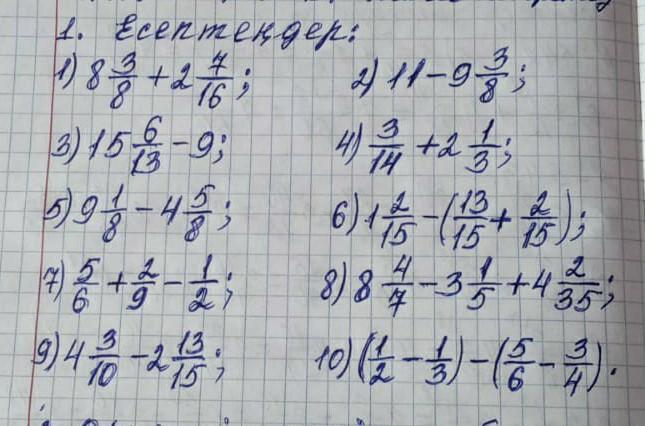 1. Есептеңдер:
1) 8 3/8 + 2 7/16; 2) 11 - 9 3/8;
3) 15 6/13 - 9; 4) 3/14 + 2 1/3;
5) 9 1/8 - 4 5/8; 6) 1 2/15 - (13/15 + 2/15);
7) 5/6 + 2/9 - 1/2; 8) 8 4/7 - 3 1/5 + 4 2/35;
9) 4 3/10 - 2 13/15; 10) (1/2 - 1/3) - (5/6 - 3/4).